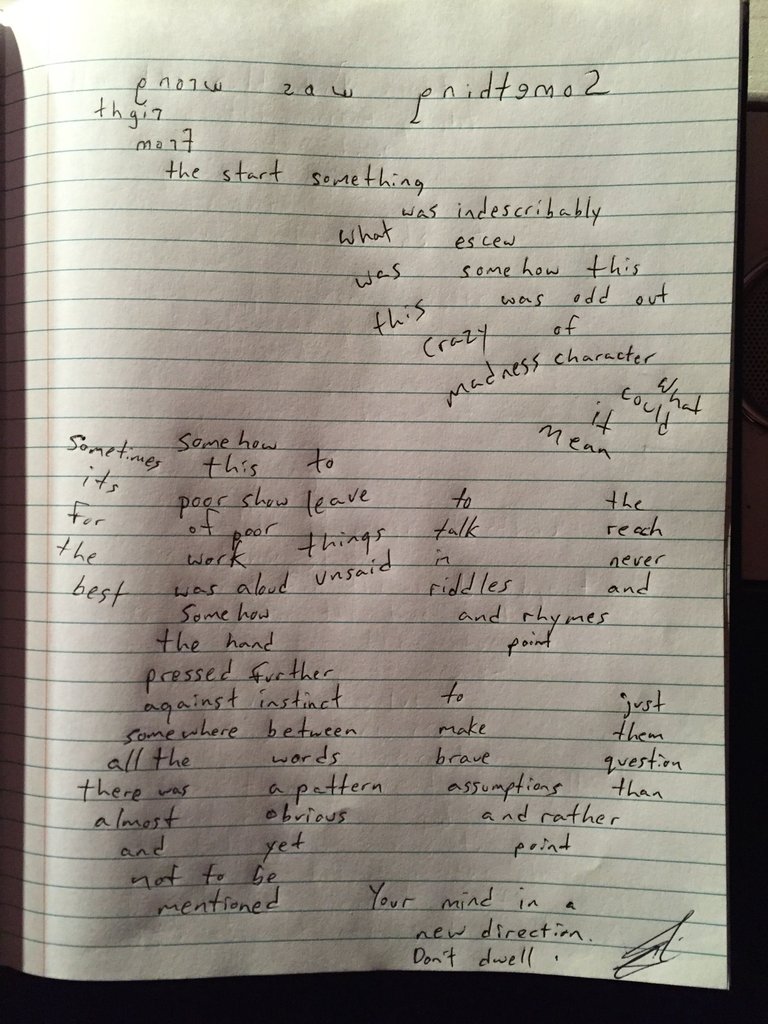 Something was wrong
right
from
the start something
was indescribably
escew
somehow this
was odd out
of
character
what
was
this
crazy
madness
What
could
it
mean
Sometimes
its
for
the
best
to
leave
things
unsaid
Somehow
this
poor show
of poor
work
was aloud
Somehow
the hand
pressed further
against instinct
somewhere between
all the words
there was a pattern
almost obvious
and yet
not to be
mentioned
to the
talk reach
in never
riddles and
and rhymes
point
to just
make them
brave question
assumptions than
and rather
point
Your mind in a
new direction.
Don't dwell.